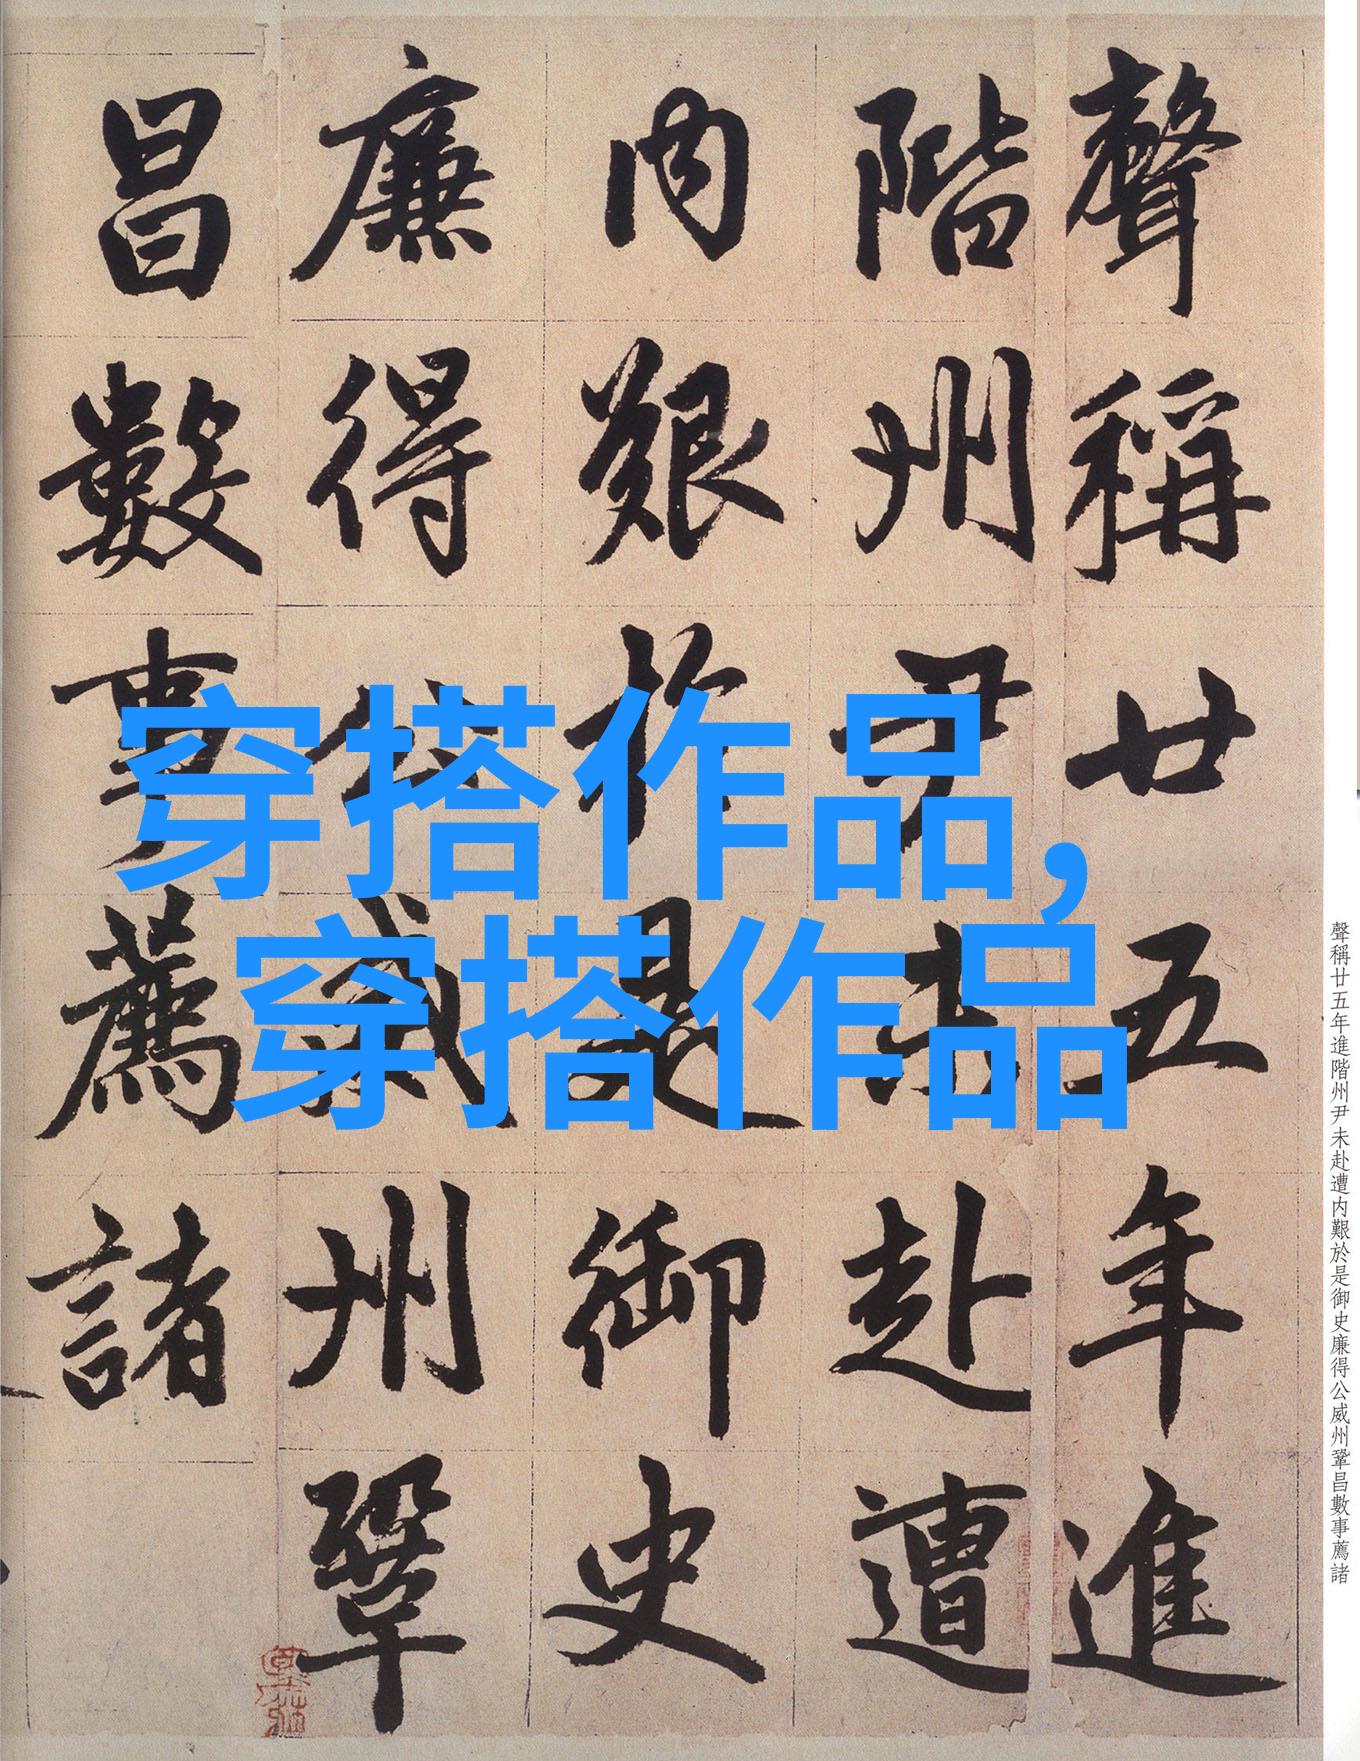 聲稱廿五年進
階州尹未赴遭
内艱於是御史
廉得公威州鞏
昌數事薦諸
穿搭作品,
穿搭作品
聲稱廿五年進階州尹未赴遭内艱於是御史廉得公威州鞏昌數事薦諸